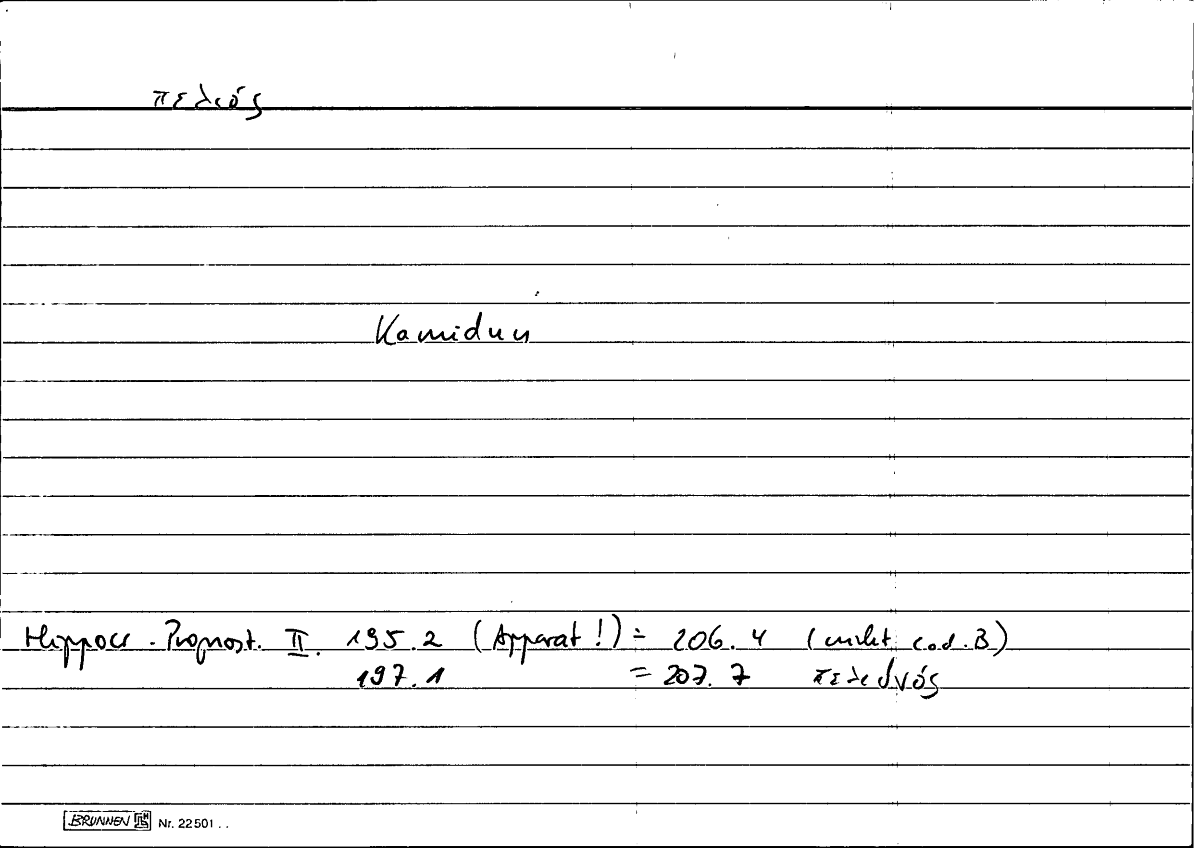 πελιός
Kamidun
Hippocr. Prognost. II. 195.2 (Apparat!) = 206.4 (nicht cod. B)
197.1 = 207.7 πελιδνός
BRUNNEN Nr. 22501 ..